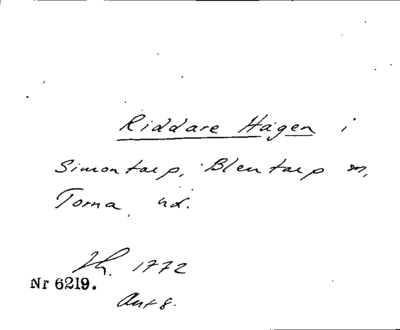 Riddare Hagen i
Simontarp, Blentarp sn,
Torna hd.
Th. 1772
Nr 6219.
Ant 8.